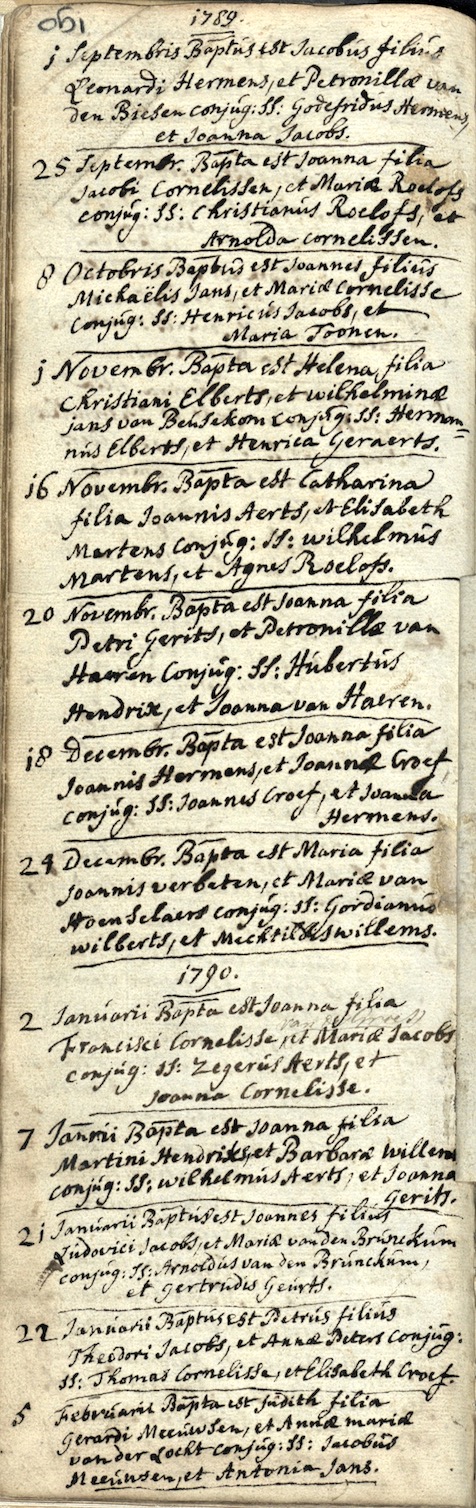 190
1789.
1 Septembris Baptús est Jacobús filiús
Leonardi Hermens, et Petronillæ van
den Biesen conjúg: SS: Godefridus Hermens,
et Joanna Jacobs.
25 Septembr. Bapta est Joanna filia
Jacobi Cornelissen, et Mariæ Roelofs
conjúg: SS: Christianús Roelofs, et
Arnolda Cornelissen.
8 Octobris Baptús est Joannes filiús
Michaëlis Jans, et Mariæ Cornelisse
Conjúg: SS: Henricús Jacobs, et
Maria Toonen.
1 Novembr. Bapta est Helena filia
Christiani Elberts, et Wilhelminæ
Jans van Beúsekom conjúg: SS: Herman=
nús Elberts, et Henrica Geraerts.
16 Novembr. Bapta est Catharina
filia Joannis Aerts, et Elisabeth
Martens conjúg: SS: Wilhelmús
Martens, et Agnes Roelofs.
20 Novembr. Bapta est Joanna filia
Petri Gerits, et Petronillæ van
Haeren Conjúg: SS: Húbertús
Hendrix, et Joanna van Haeren.
18 Decembr. Bapta est Joanna filia
Joannis Hermens, et Joannæ Croef
conjúg: SS: Joannes Croef, et Joanna
Hermens.
24 Decembr. Bapta est Maria filia
Joannis verbeten, et Mariæ van
Hoenselaers conjúg: SS: Gordianús
Wilberts, et Mechtildis Willems.
1790.
2 Januarii Bapta est Joanna filia
Francisci Cornelisse, et Mariæ Jacobs
conjúg: SS: Zegerús Aerts, et
Joanna Cornelisse.
7 Janrii Bapta est Joanna filia
Martini Hendriks, et Barbaræ Willems
conjúg: SS: Wilhelmús Aerts, et Joanna
Gerits.
21 Januarii Baptús est Joannes filiús
Ludovici Jacobs, et Mariæ van den Brúnckúm
conjúg: SS: Arnoldús van den Brúnckúm,
et Gertrudis Geúrts.
22 Januarii Baptús est Petrús filiús
Theodori Jacobs, et Annæ Peters Conjúg:
SS: Thomas Cornelisse, et Elisabeth Croef.
5 Februarii Bapta est Júdith filia
Gerardi Meeúwsen, et Annæ mariæ
van der Locht conjúg: SS: Jacobús
Meeúwsen, et Antonia Jans.